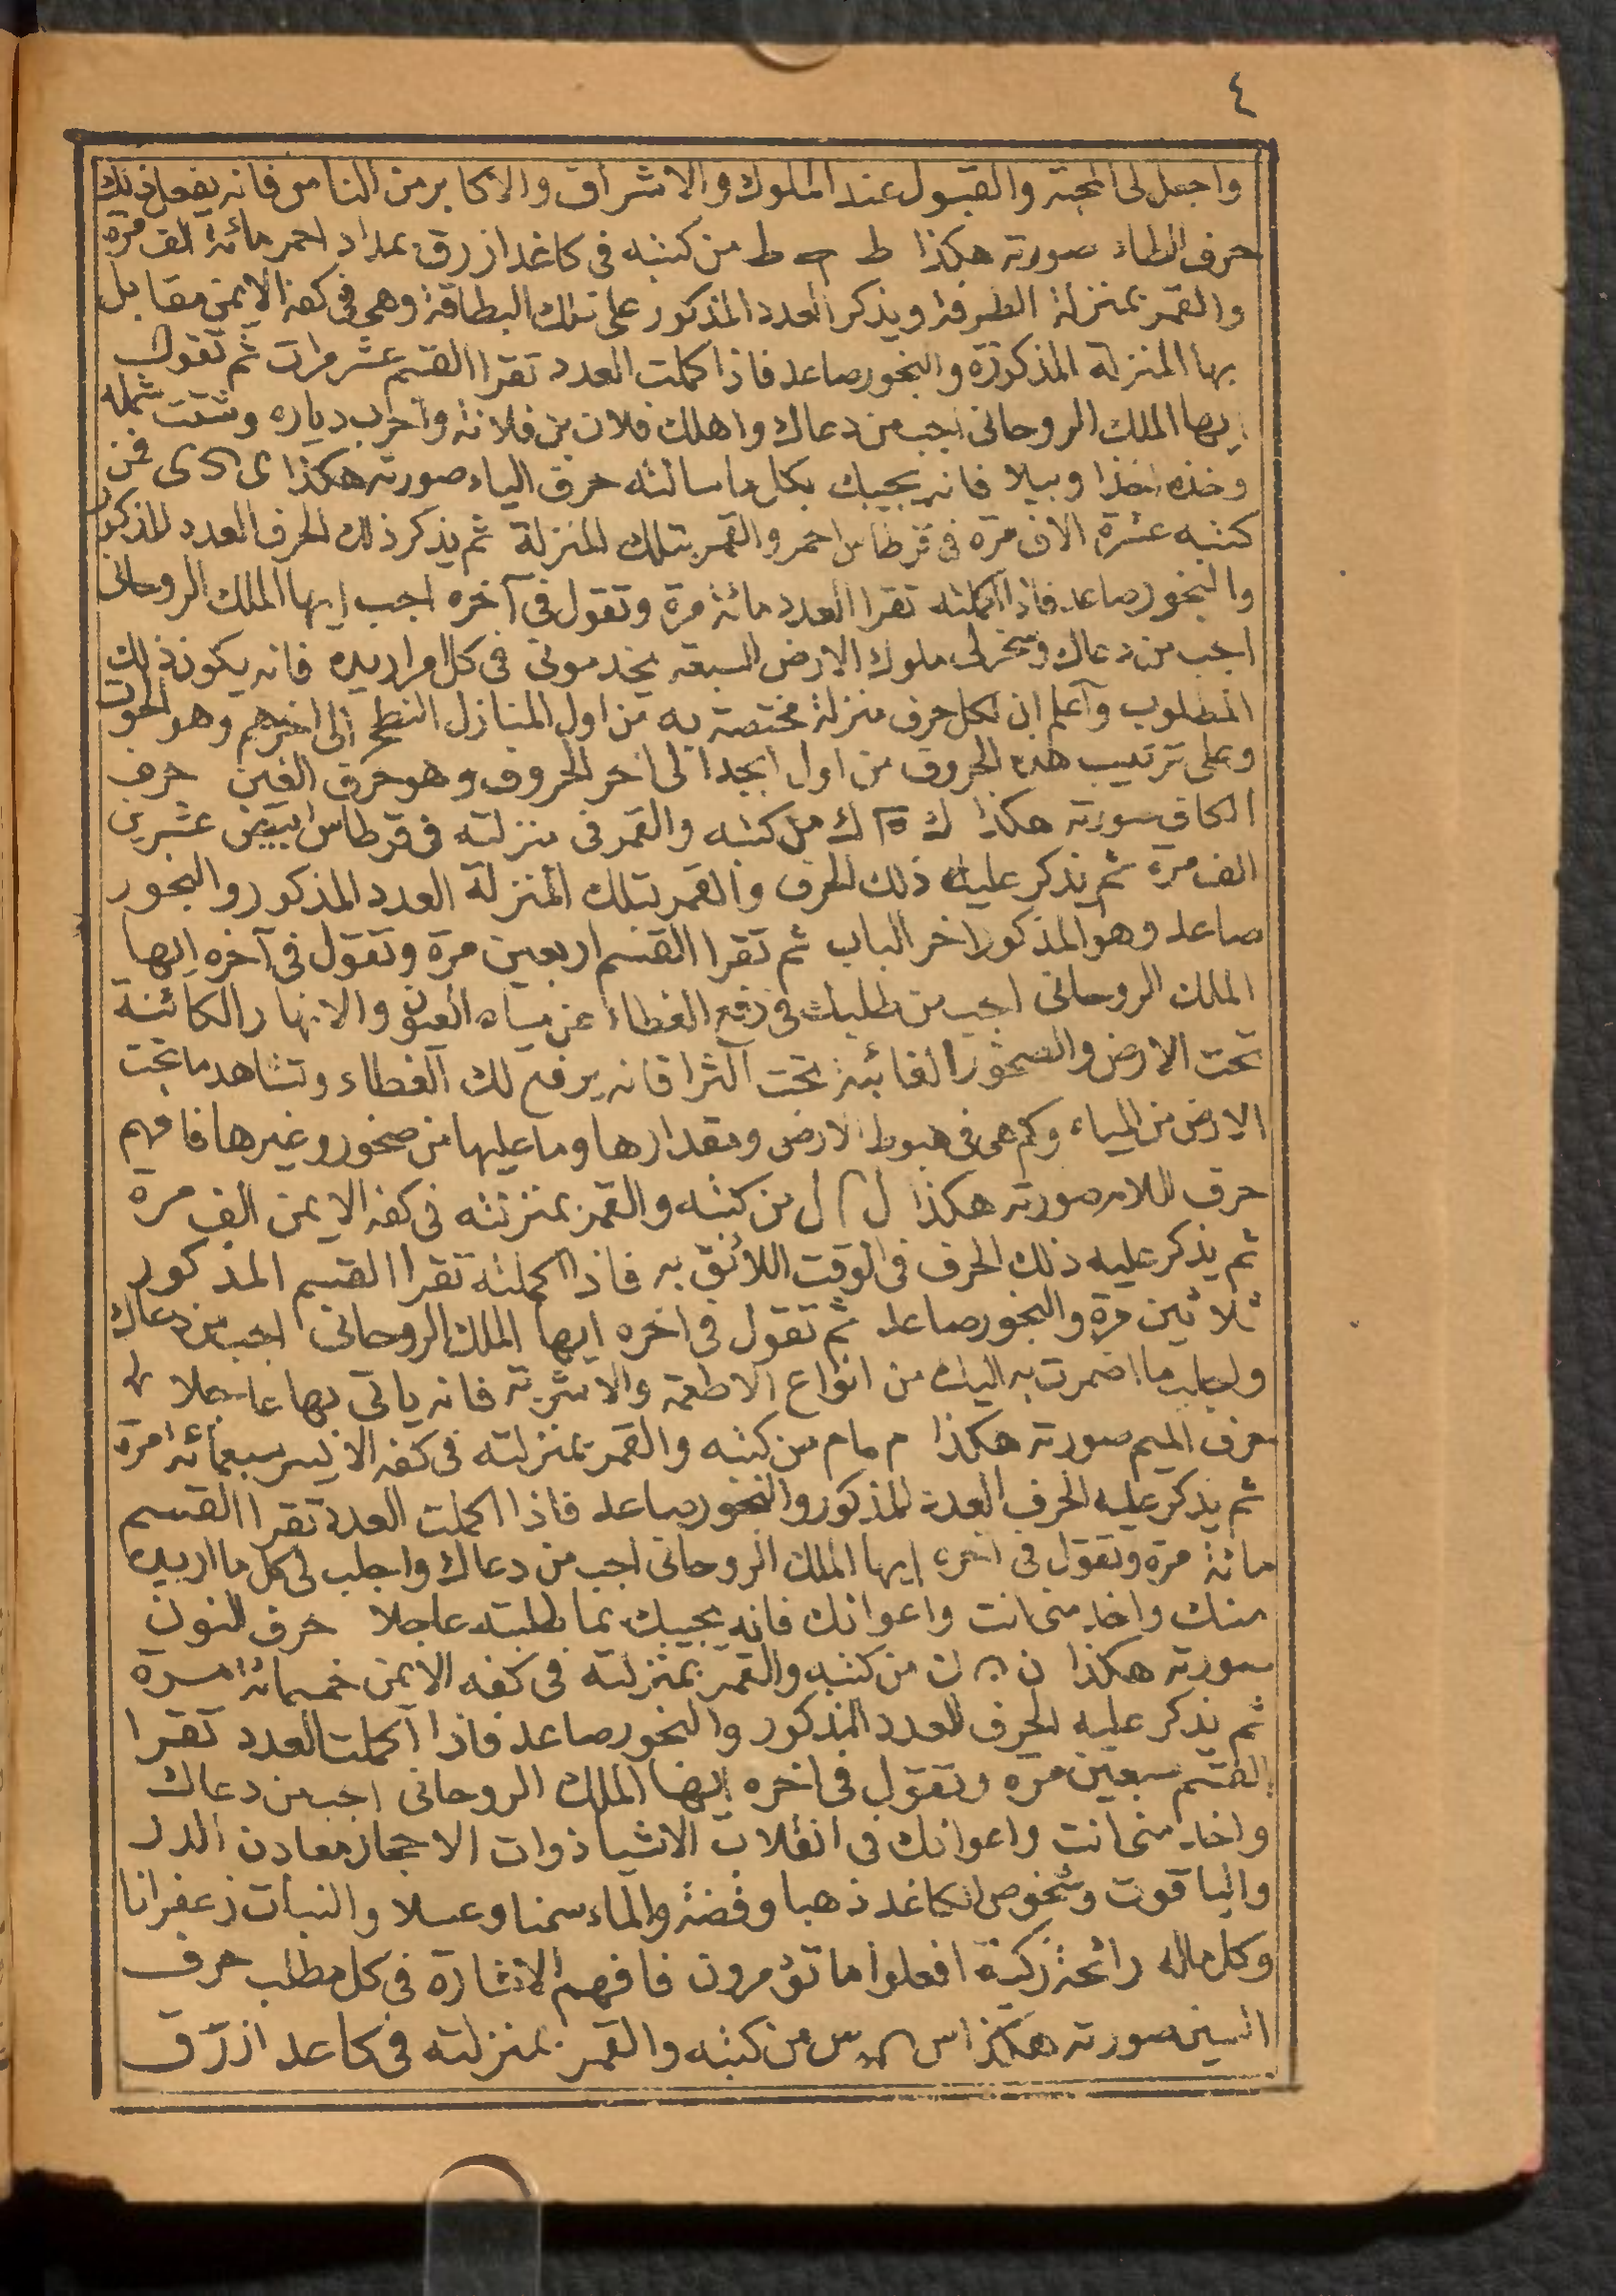 ٤
واجعل لى المحبة والقبول عند الملوك والاشراف والاكابر من الناس فانه يفعل ذلك
حرف الطاء صورته هكذا ط ط من كتبه فى كاغد ازرق بمداد احمر مائة الف مرة
والقمر بمنزلة الطرفة ويذكر العدد المذكور على تلك البطاقة وهى فى كفه الايمن مقابل
بها المنزلة المذكورة والبخور صاعد فاذا كملت العدد تقرا القسم عشر مرات ثم تقول
ايها الملك الروحانى اجب من دعاك واهلك فلان بن فلانة واخرب دياره وشتت شمله
وخذه اخذا وبيلا فانه يجيبك بكل ما سالته حرف الياء صورته هكذا ى ى فمن
كتبه عشرة الاف مرة فى قرطاس احمر والقمر بتلك المنزلة ثم يذكر ذلك الحرف العدد المذكور
والبخور صاعد فاذا اكملته تقرا العدد مائة مرة وتقول فى آخره اجب ايها الملك الروحانى
اجب من دعاك وسخر لى ملوك الارض السبعة يخدمونى فى كل امر اريده فانه يكون ذلك
المطلوب وآعلم ان لكل حرف منزلة مختصة به من اول المنازل النطح الى اخرهم وهو الحوت
وعلى ترتيب هذه الحروف من اول ابجد الى اخر الحروف وهو حرف الغين حرف
الكاف صورته هكذا ك ك من كتبه والقمر فى منزلته فى قرطاس ابيض عشرين
الف مرة ثم يذكر عليه ذلك الحرف والقمر بتلك المنزلة العدد المذكور والبخور
صاعد وهو المذكور اخر الباب ثم تقرا القسم اربعين مرة وتقول فى آخره ايها
الملك الروحانى اجب من طلبك فى رفع الغطاء عن مياه العيون والانهار الكائنة
تحت الارض والصخور الغائبة تحت الثرا فانه يرفع لك الغطاء وتشاهد ما تحت
الارض من المياه وكم هى فى هبوط الارض ومقدارها وما عليها من صخور وغيرها فافهم
حرف اللام صورته هكذا ل ل من كتبه والقمر بمنزلته فى كفه الايمن الف مرة
ثم يذكر عليه ذلك الحرف فى الوقت اللائق به فاذا اكملته تقرا القسم المذكور
ثلاثين مرة والبخور صاعد ثم تقول فى اخره ايها الملك الروحانى اجب من دعاك
ما اضمرت به اليك من انواع الاطعمة والاشربة فانه ياتى بها عاجلا
حرف الميم صورته هكذا م ما م من كتبه والقمر بمنزلته فى كفه الايسر سبعمائة مرة
ثم يذكر عليه الحرف العدد المذكور والبخور صاعد فاذا اكملت العدد تقرا القسم
مائة مرة وتقول فى اخره ايها الملك الروحانى اجب من دعاك واجلب لى كل ما اريده
منك واخدمنى انت واعوانك فانه يجيبك بما طلبته عاجلا حرف النون
صورته هكذا ن ن من كتبه والقمر بمنزلته فى كفه الايمن خمسمائة مرة
ثم يذكر عليه الحرف العدد المذكور والبخور صاعد فاذا اكملت العدد تقرا
القسم سبعين مرة وتقول فى اخره ايها الملك الروحانى اجب من دعاك
واخدمنى انت واعوانك فى انقلاب الاشيا ذوات الاحجار معادن الدر
والياقوت وشخوص الكاغد ذهبا وفضة والماء سمنا وعسلا والنبات زعفرانا
وكل ماله رائحة زكية افعلوا ما تؤمرون فافهم الاشارة فى كل مطلب حرف
السين صورته هكذا س س من كتبه والقمر بمنزلته فى كاغد ازرق